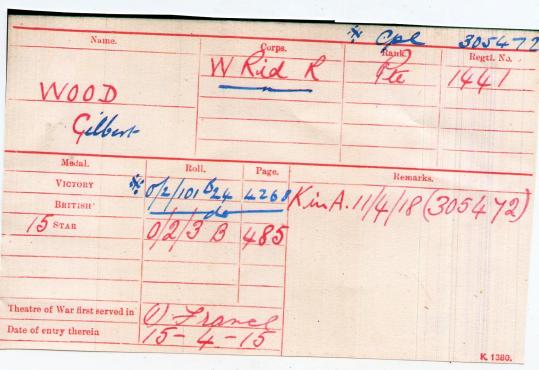 Name. Corps. Rank. Regtl. No.
※ Cpl 305472
W Rid R Pte 1441
WOOD
Gilbert
Medal. Roll. Page. Remarks.
VICTORY ※ O/2/101 B24 4268 K in A. 11/4/18 (305472)
BRITISH do
15 STAR O/2/3 B 485
Theatre of War first served in (1) France
Date of entry therein 15-4-15
K. 1380.